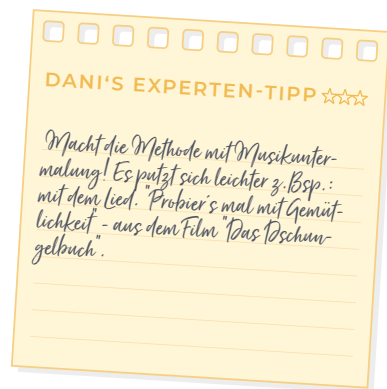 DANI'S EXPERTEN-TIPP
Macht die Methode mit Musikunter-
malung! Es putzt sich leichter z.Bsp.:
mit dem Lied. "Probier's mal mit Gemüt-
lichkeit" - aus dem Film "Das Dschun-
gelbuch".